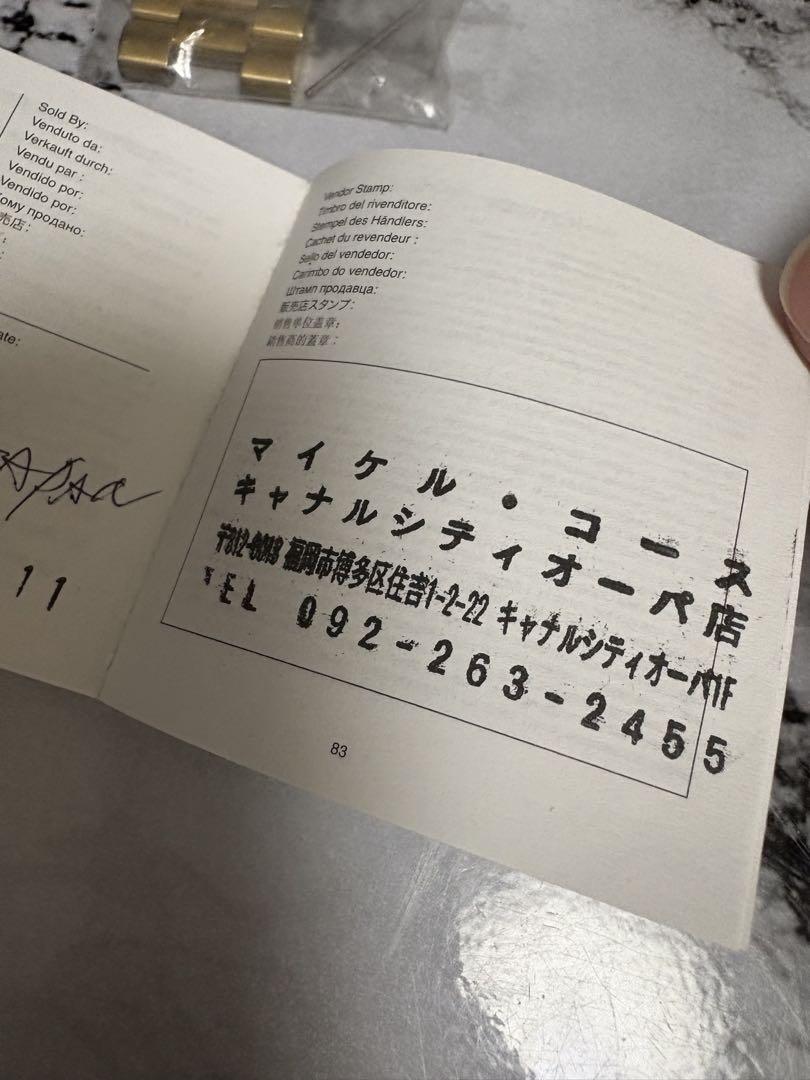 Sold By:
Venduto da:
Verkauft durch:
Vendu par :
Vendido por:
Vendido por:
Кому продано:
売店:
ate:
11
Vendor Stamp:
Timbro del rivenditore:
Stempel des Händlers:
Cachet du revendeur :
Sello del vendedor:
Carimbo do vendedor:
Штамп продавца:
販売店スタンプ:
销售单位盖章:
銷售商的蓋章:
マイケル・コース
キャナルシティオーパ店
福岡市博多区住吉1-2-22 キャナルシティオーパ1F
TEL 092-263-2455
83